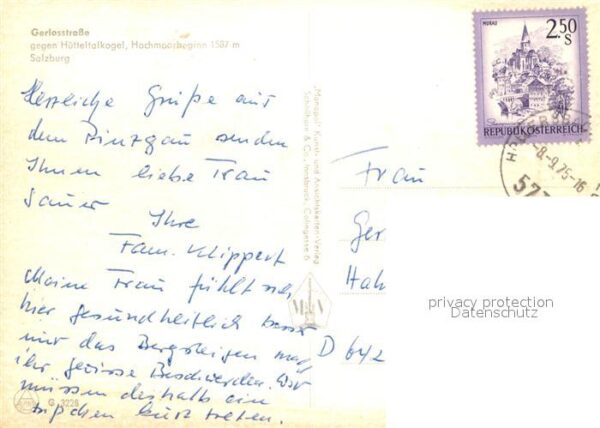 Gerlosstraße
gegen Hütteltalkogel, Hochmoorbeginn 1587 m
Salzburg
Herzliche Grüße aus
dem Pinzgau senden
Ihnen liebe Frau
Sauer
Ihre
Fam. Klippert
Meine Frau fühlt sich
hier gesundheitlich besser
nur das Bergsteigen mach
ihr gewisse Beschwerden. Wir
müssen deshalb ein
bißchen kurz treten.
G 3226
"Monopol" Kunst- und Ansichtskarten-Verlag
Schöllhorn & Co., Innsbruck, Colingasse 6
Frau
Ger
Hah
D 642
MURAU
2.50
S
REPUBLIK ÖSTERREICH
-8.-9.75-16
57
privacy protection
Datenschutz